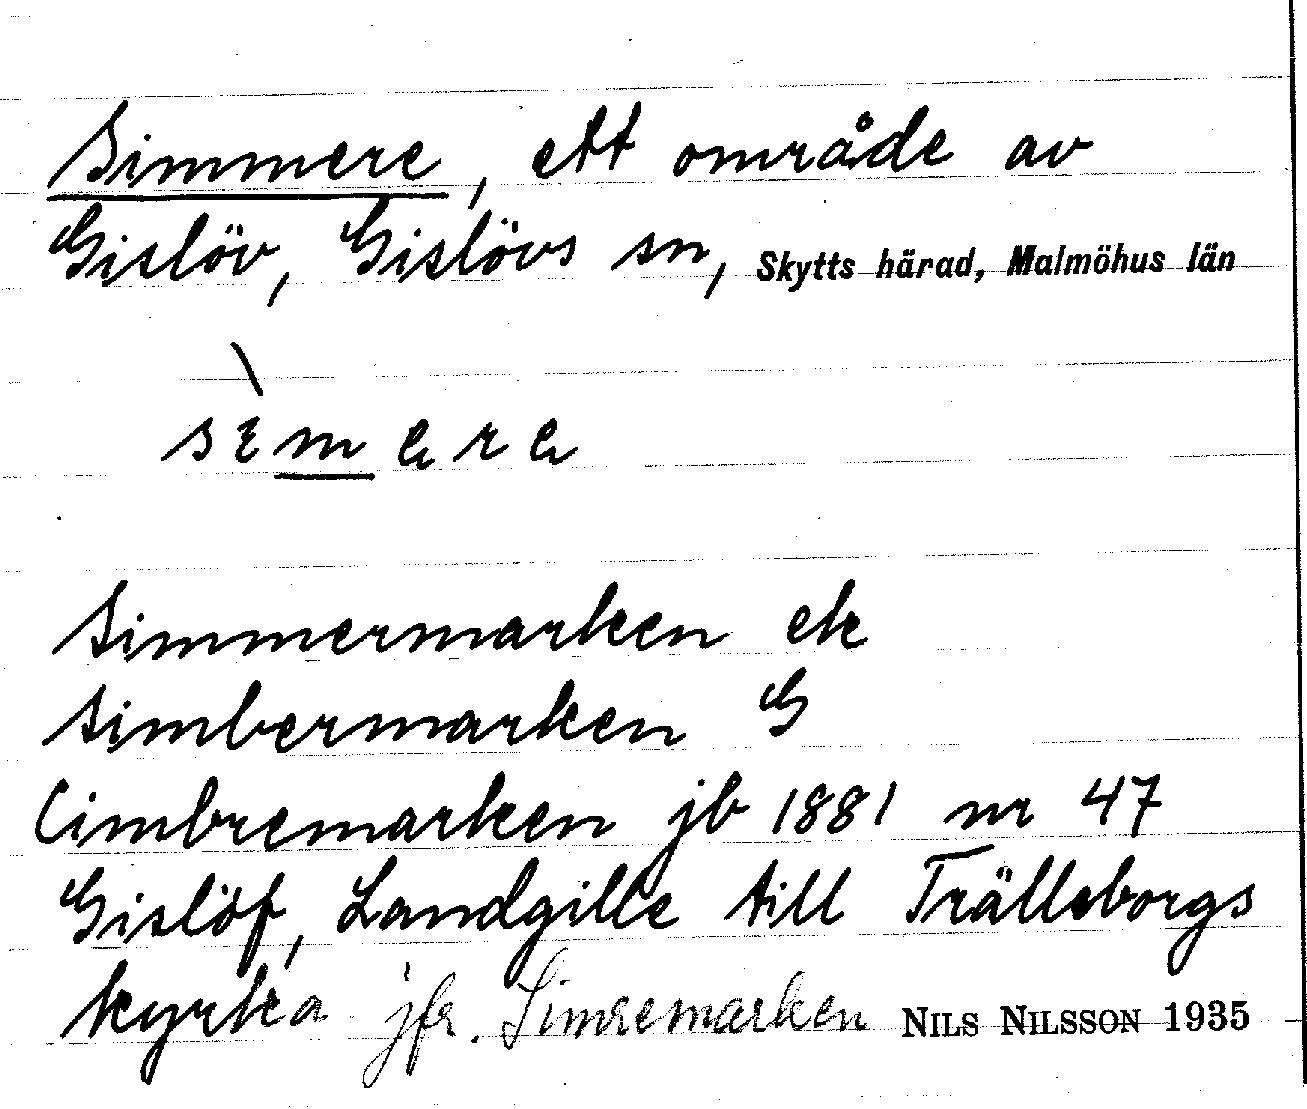 Simmere, ett område av
Gislöv, Gislövs sn, Skytts härad, Malmöhus län
Simmermarken ek
Simbermarken G
Cimbremarken jb 1881 nr 47
Gislöf, Landgille till Trälleborgs
kyrka jfr. Simremarken NILS NILSSON 1935